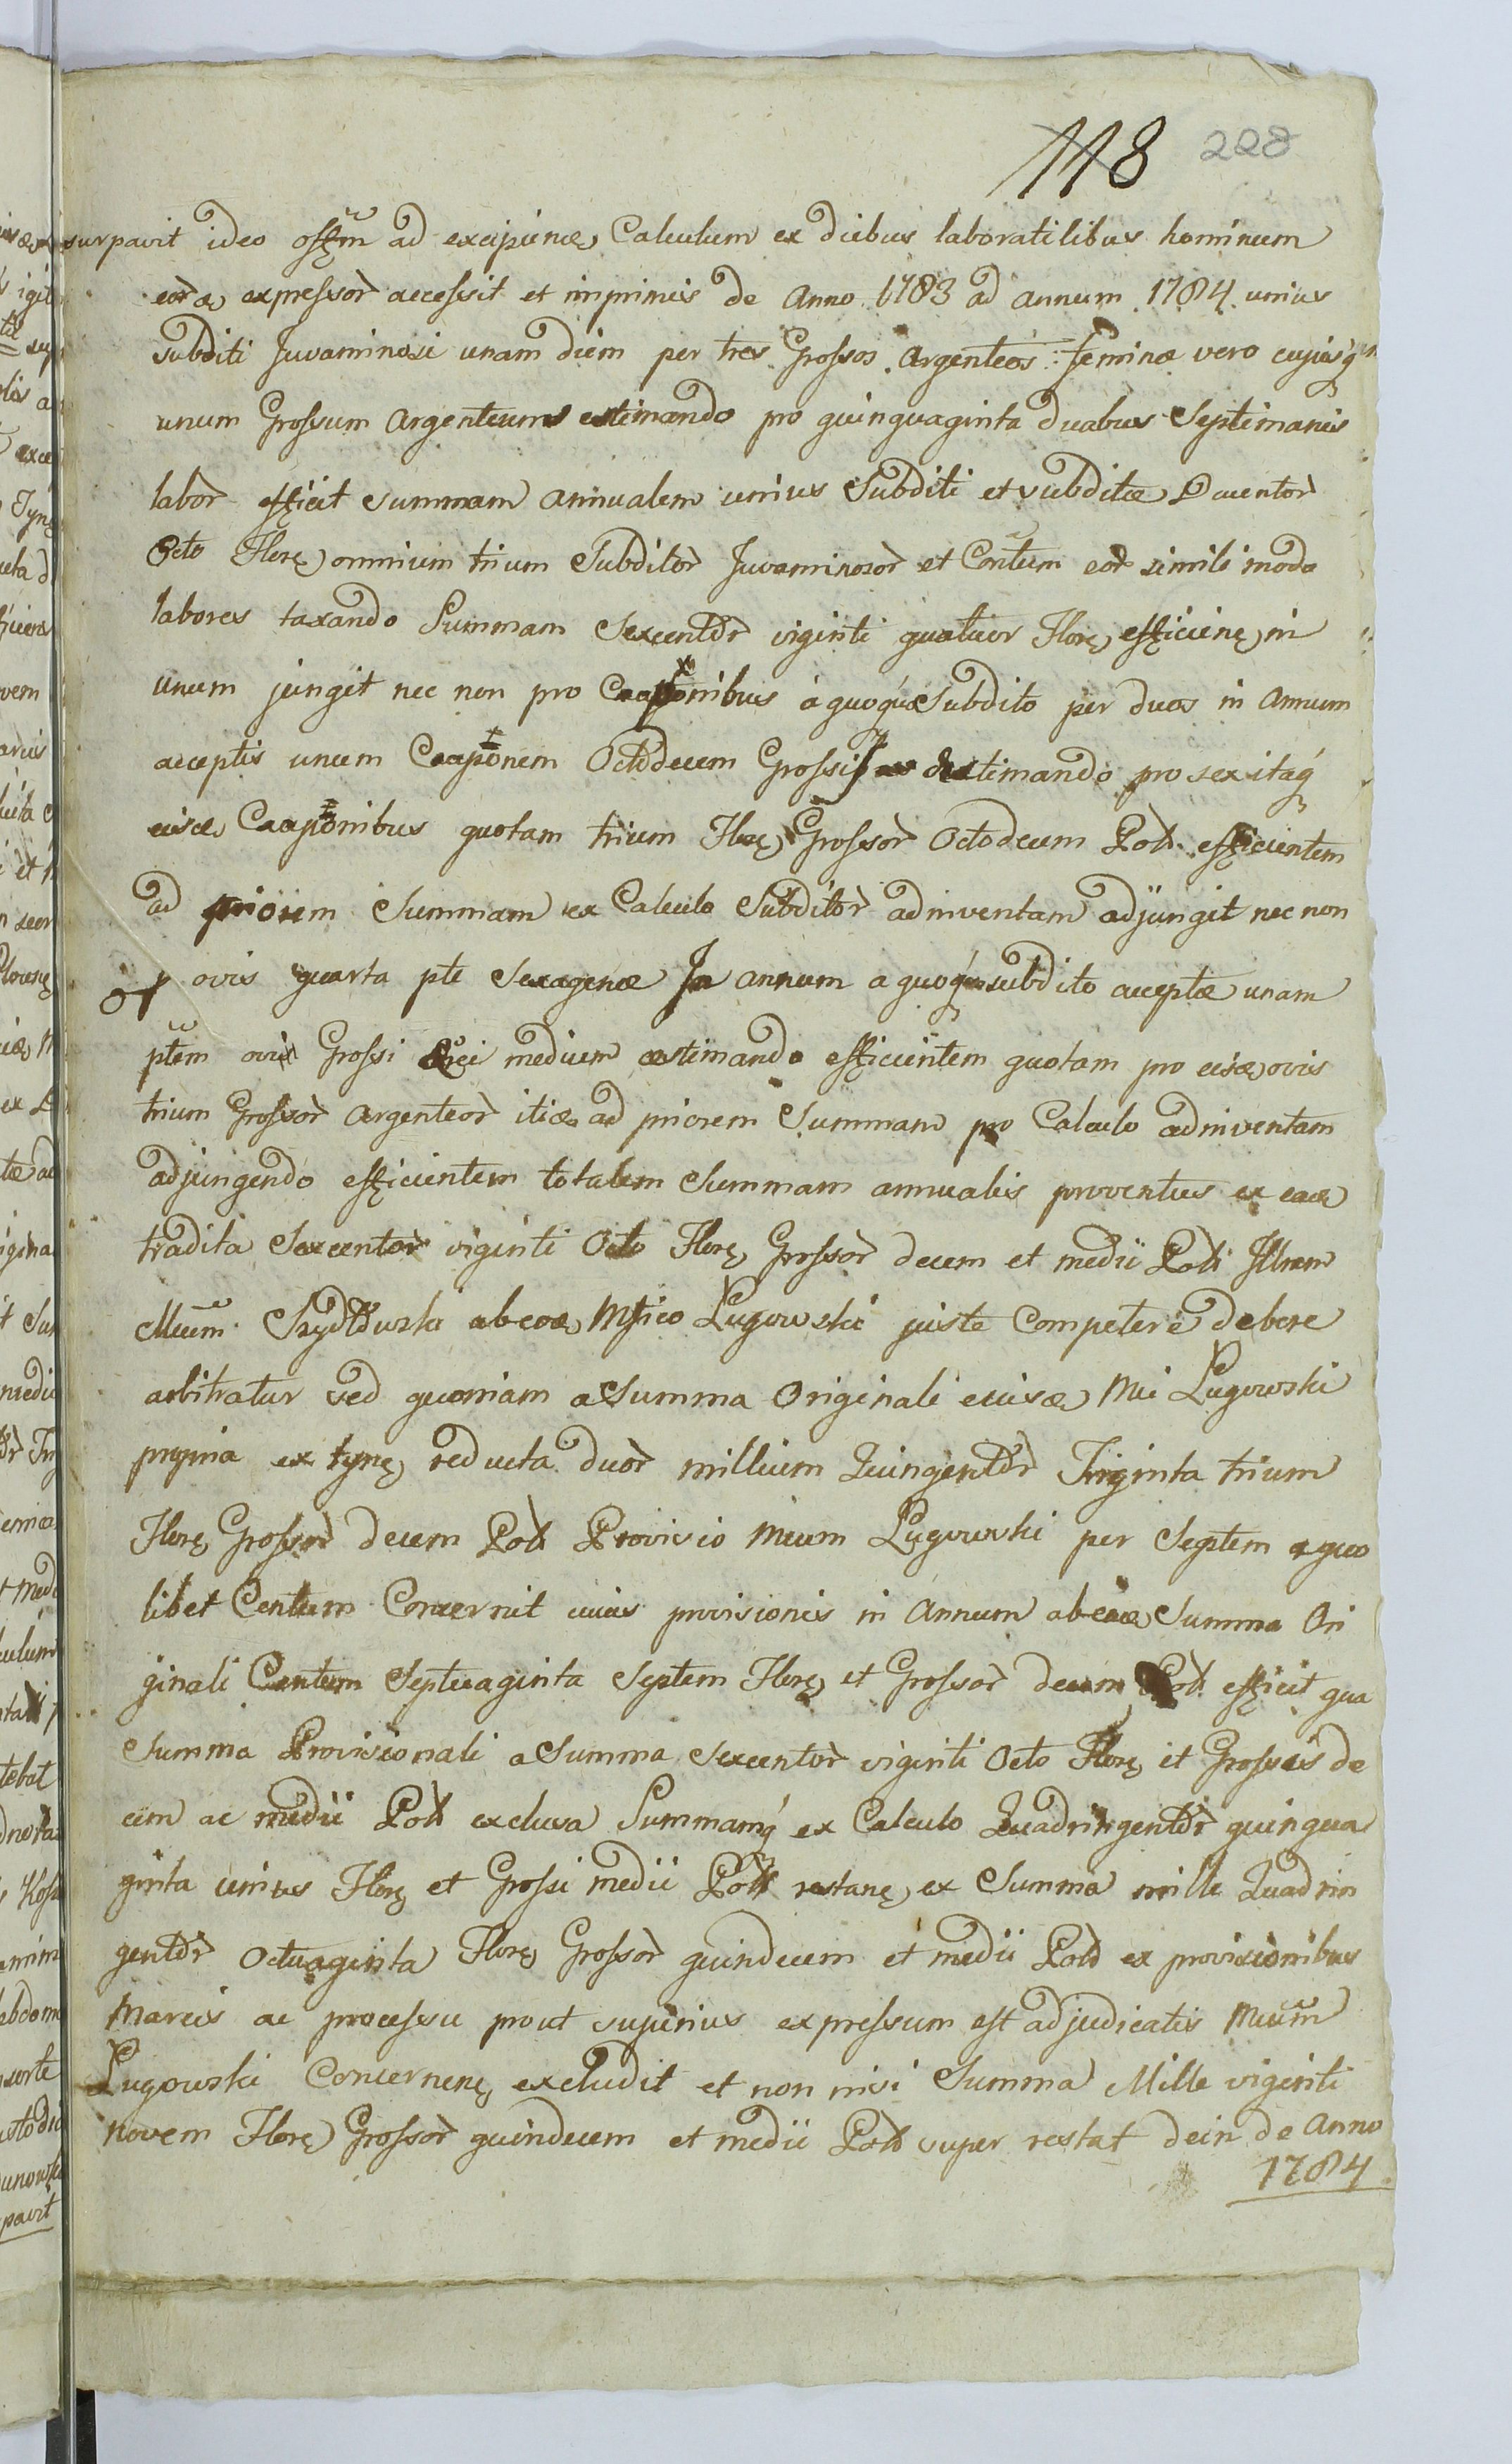 118 228
surpavit ideo offm ad excipienę Calculum ex diebus laboratilibus hominum
eorą expressor accessit et imprimis de Anno 1783 ad annum 1784 unius
subditi Juvaminosi unam diem per tres Grossos Argenteos feminæ vero cujusq
unum Grossum Argenteum estimando pro quinquaginta duabus Septimanis
labor efficit summam annualem unius Subditi et subditæ Ducentor
Octo Florę omnium trium Subditor Juvaminosor et Contum eor simili modo
labores taxando Summam Sexcentor viginti quatuor Florę efficienę in
unum jungit nec non pro Caaponibus à quoqúe Subdito per duos in Annum
acceptis unum Caaponem Octodecem Grossis estimando pro sex itaq
eisdę Caaponibus quotam trium Florę Grossor Octodecem Poll. efficientem
ad priorem Summam ex Calculo Subditor adinventam adjungit nec non
ovis quarta pte Sexagenæ In annum a quoq subdito acceptæ unam
ptem ovis Grossi medium æstimando efficientem quotam pro eisdę ovis
trium Grossor Argenteor itidę ad priorem Summam pro Calculo adinventam
adjungendo efficientem totalem Summam annualis proventus ex eadę
tradita Sexcentor viginti Octo Florę Grossor decem et medii Poll Illrem
Mcum Szydłowski ab eodę Mfico Ługowski juste Competere debere
arbitratur sed quoniam a Summa Originali ejusdę Mci Ługowski
propria ex tynę reducta duor millium Quingentor Triginta trium
Florę Grossor decem Poll Provisio Mcum Ługowski per Septem a quo
libet Centum Concernit cuius provisionis in Annum ab eadę Summa Ori
ginali Centum Septuaginta Septem Florę et Grossor decem Poll efficit qua
Summa Provisionali a Summa Sexcentor viginti Octo Florę et Grossis de
cem ac medii Poll exclusa Summamq ex Calculo Quadringentor quinqua
ginta unius Florę et Grossi medii Poll restanę ex Summa mille Quadrin
gentor Octuaginta Florę Grossor quindecem et medii Poll ex provisionibus
Marcis ac processu prout superius expressum est adjudicatis Mcum
Ługowski Concernenę excludit et non nisi Summa Mille viginti
novem Florę Grossor quindecem et medii Poll super restat dein de Anno
1784